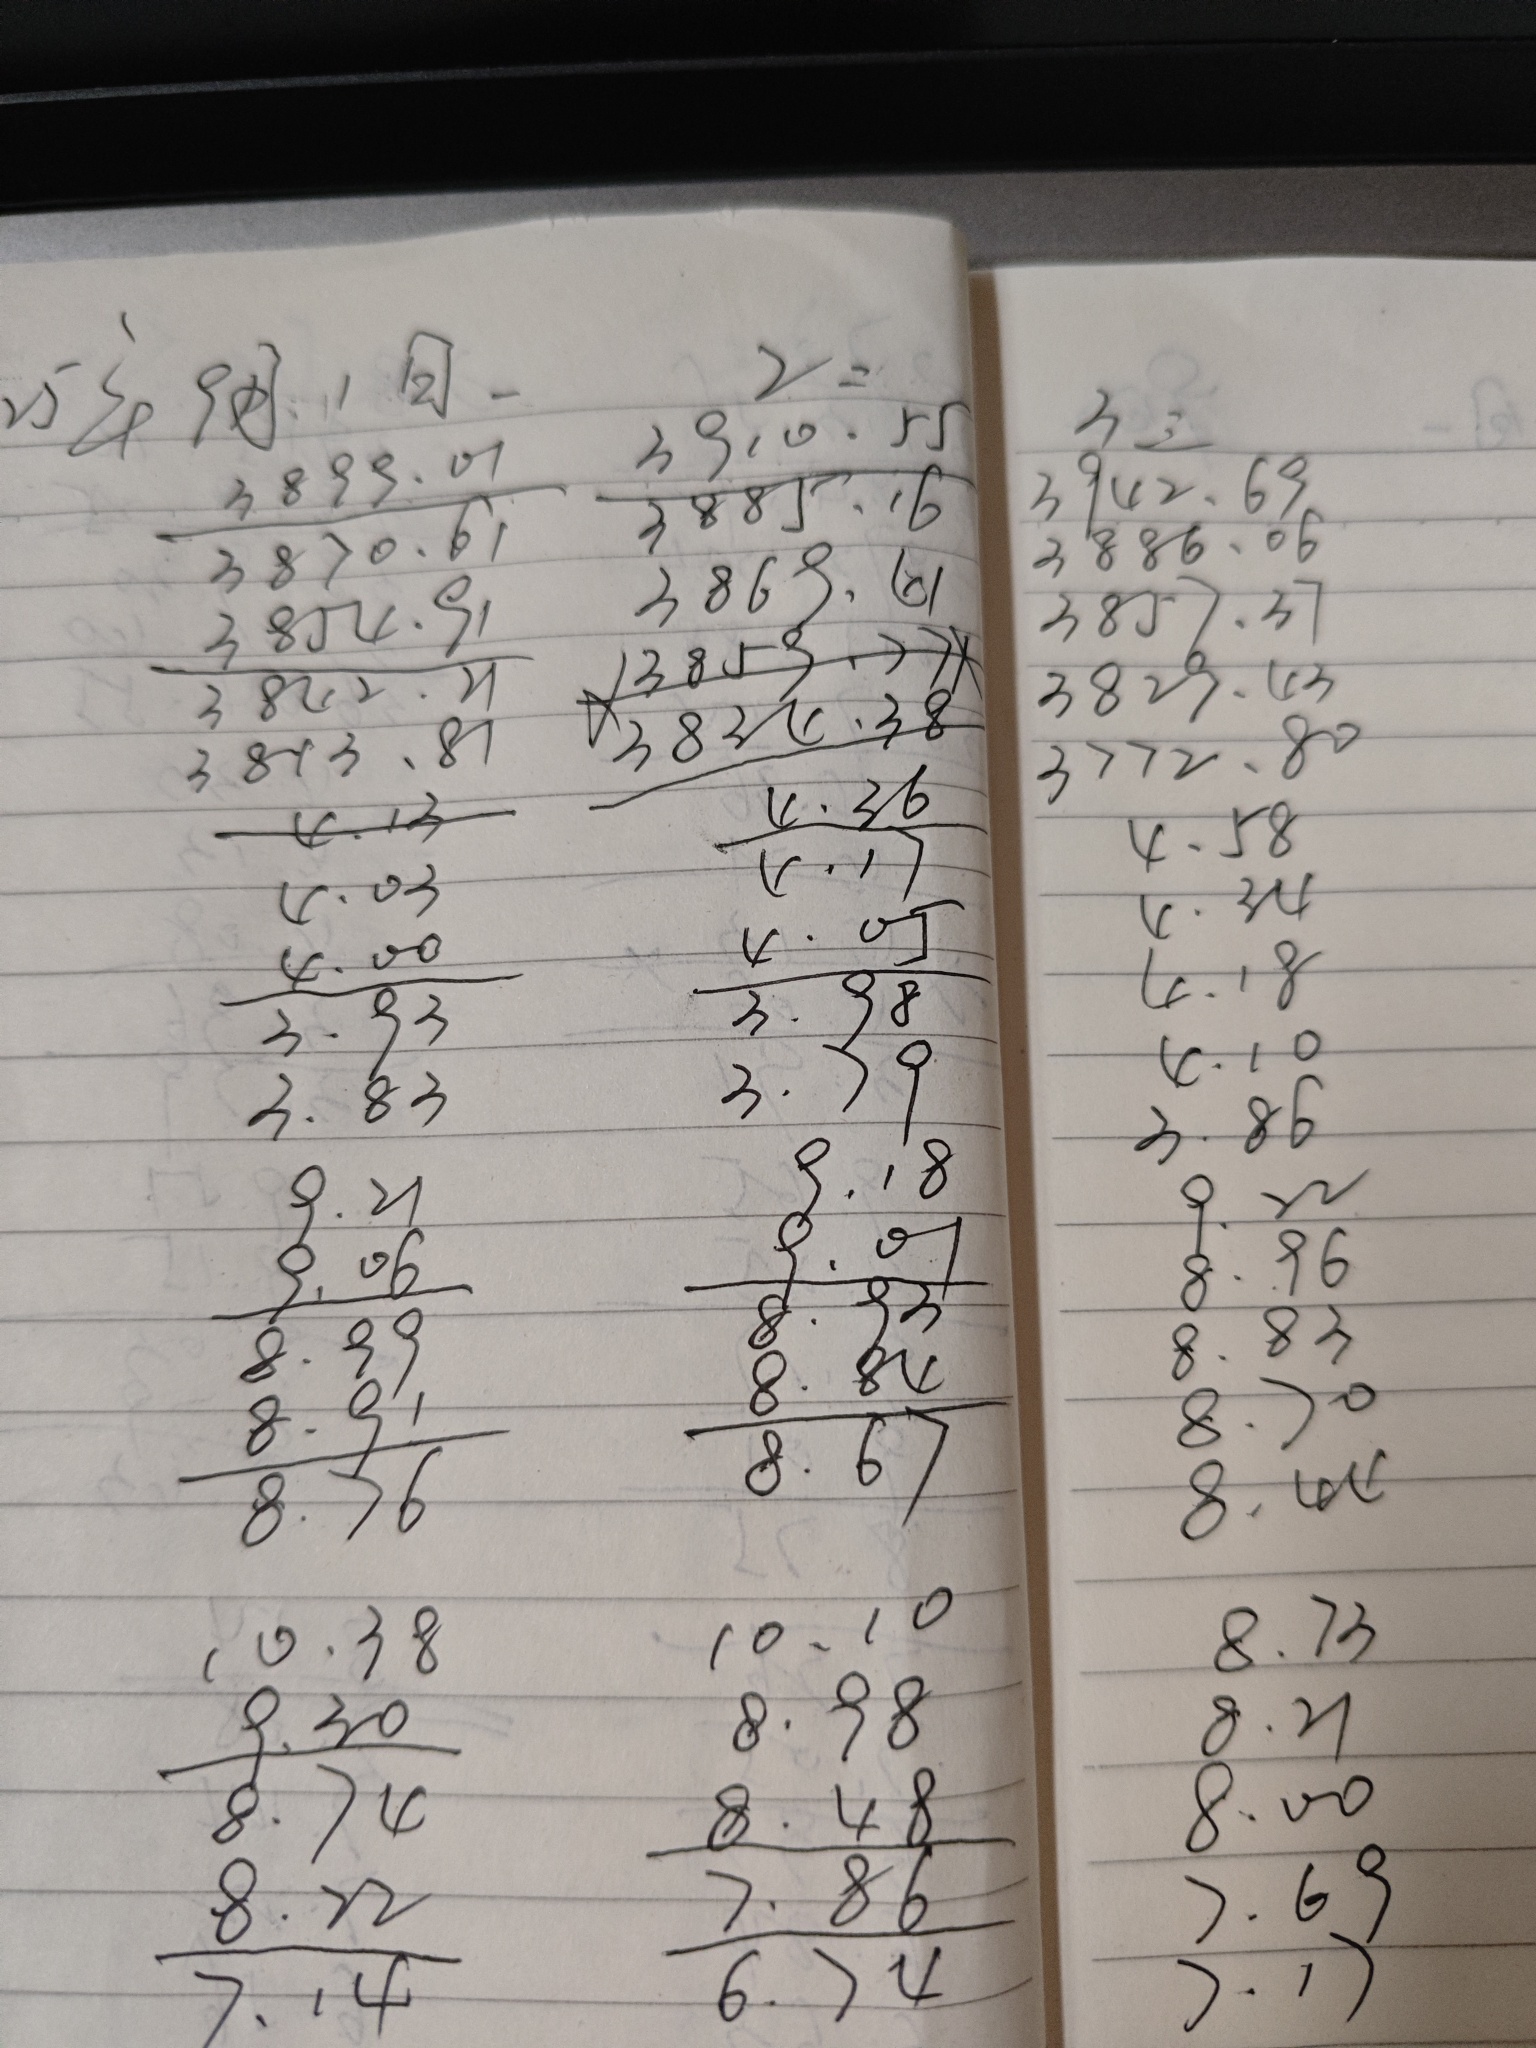 25年9月.1日 一
3899.01
3870.61
3854.91
3842.21
3813.81
4.13
4.03
4.00
3.93
3.83
9.21
9.06
8.99
8.91
8.76
10.38
9.30
8.74
8.22
7.14
2 二
3910.55
3885.16
3869.61
3859.77
3834.38
4.36
4.17
4.05
3.98
3.79
9.18
9.01
8.93
8.84
8.67
10.10
8.98
8.48
7.86
6.74
3 三
3942.69
3886.06
3857.37
3829.43
3772.80
4.58
4.34
4.18
4.10
3.86
9.22
8.96
8.83
8.70
8.44
8.73
8.21
8.00
7.69
7.17